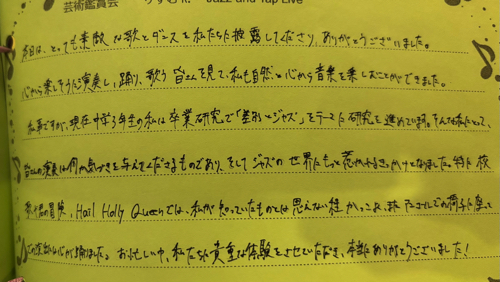 芸術鑑賞会 りずむR. Jazz and Tap Live
昨日は、とっても素敵な歌とダンスを私たちに披露してくださり、ありがとうございました。
心から楽しそうに演奏し、踊り、歌う皆さんを見て、私も自然と心から音楽を楽しむことができました。
私事ですが、現在中学3年生の私は卒業研究で「差別とジャズ」をテーマに研究を進めています。そんな私にとって、
皆さんの演奏は何か気づきを与えてくださるものであり、そしてジャズの世界にもっと惹かれるきっかけとなりました。特に校
歌の冒険、Hail Holly Queenでは、私が知っていたものとは思えない程かっこよ
心が踊りました。お忙しい中、私たちに貴重な体験をさせていただき、本当にありがとうございました！